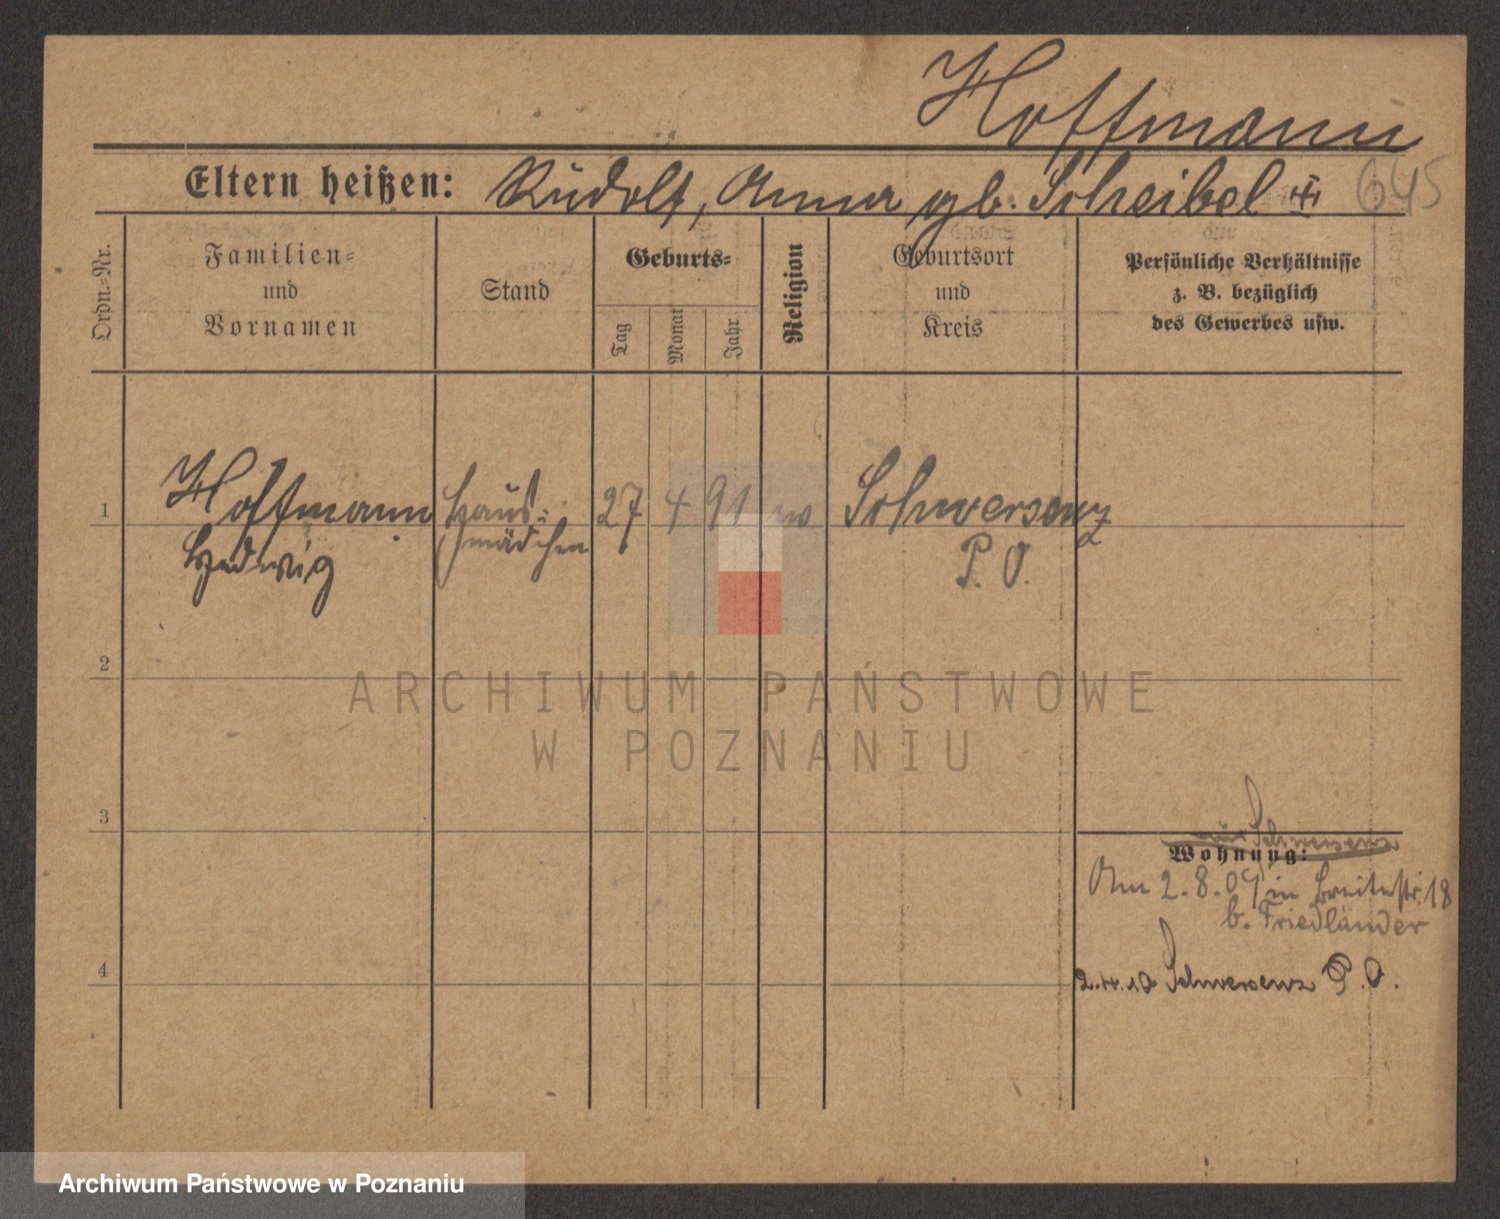 Hoffmann
Eltern heißen: Rudolf, Anna gb. Scheibel
645
Ordn.-Nr.
Familien-
und
Vornamen
Stand
Geburts-
Tag
Monat
Jahr
Religion
Geburtsort
und
Kreis
Persönliche Verhältnisse
z. B. bezüglich
des Gewerbes usw.
1
Hoffmann
Hedwig
Haus-
mädchen
27
4
91
Schwersenz
P. O.
2
ARCHIWUM PAŃSTWOWE
W POZNANIU
3
aus Schwersenz
Wohnung:
Am 2.8.09 in Breitestr. 18
b. Friedländer
4
Schwersenz P. O.
Archiwum Państwowe w Poznaniu